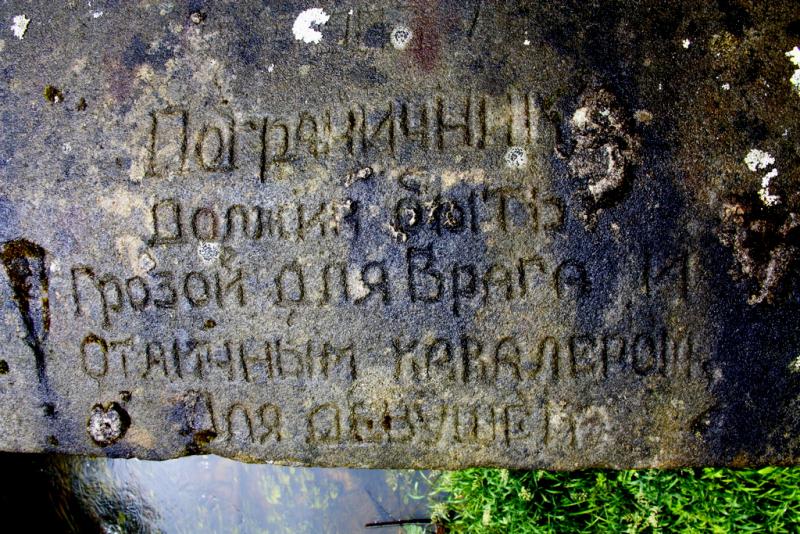 Пограничник
должин быть
грозой для врага и
отличным кавалером,
для девушек